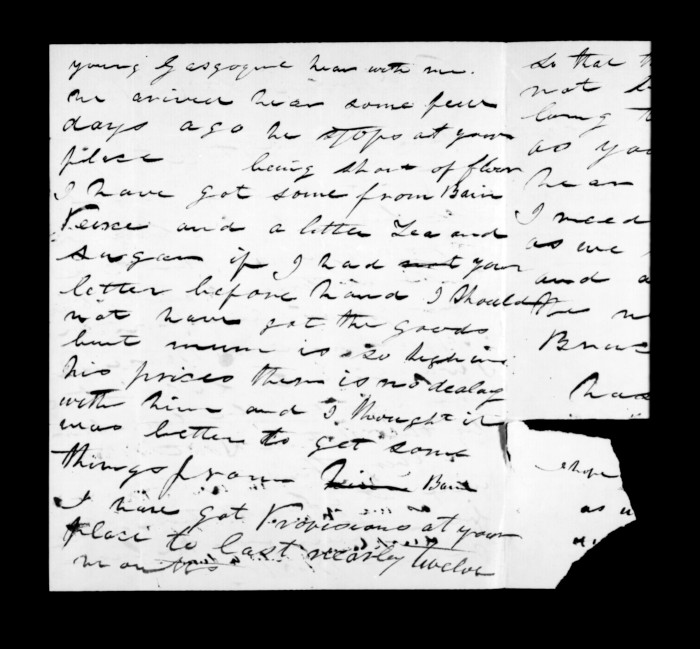 young Gasgoque hear with me.
he arived hear some few
days ago he stops at your
place being short of flour
I have got some from Bain
Peirce and a letter Tea and
sugar if I had not your
letter before hand I should
not have got the goods
but mum is so high in
his prices there is no dealing
with him and I thought it
was better to get some
things from him Bain
I have got Provisions at your
place to last nearly twelve
months
so that
not
long
as you
hear
I need
as we
and a
hope
as